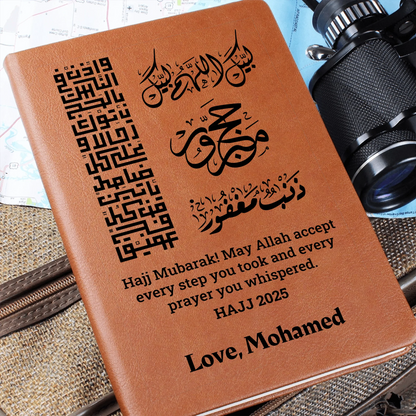 وأذن في
الناس
بالحج
يأتوك
رجالا و
على كل
ضامر
يأتين
من كل
فج عميق
لبيك اللهم لبيك
حج
مبرور
ذنب مغفور
Hajj Mubarak! May Allah accept
every step you took and every
prayer you whispered.
HAJJ 2025
Love, Mohamed